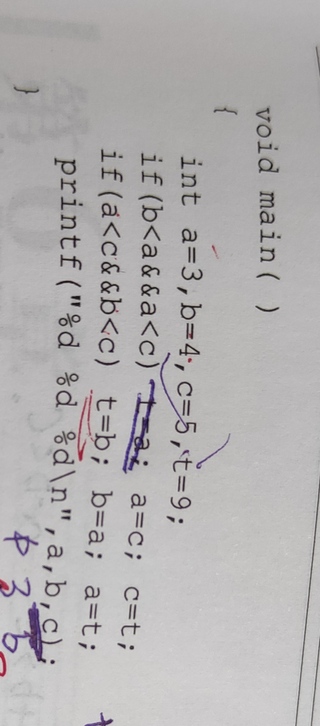 void main( )
{
int a=3,b=4,c=5,t=9;
if(b<a&&a<c) t=a; a=c; c=t;
if(a<c&&b<c) t=b; b=a; a=t;
printf("%d %d %d\n",a,b,c);
}